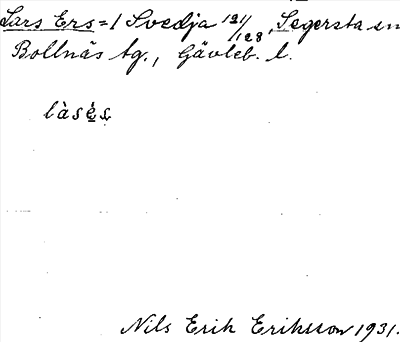 Lars Ers = 1 Svedja 12 1/128, Segersta sn
Bollnäs tg., Gävleb. l.
làsés
Nils Erik Eriksson 1931.